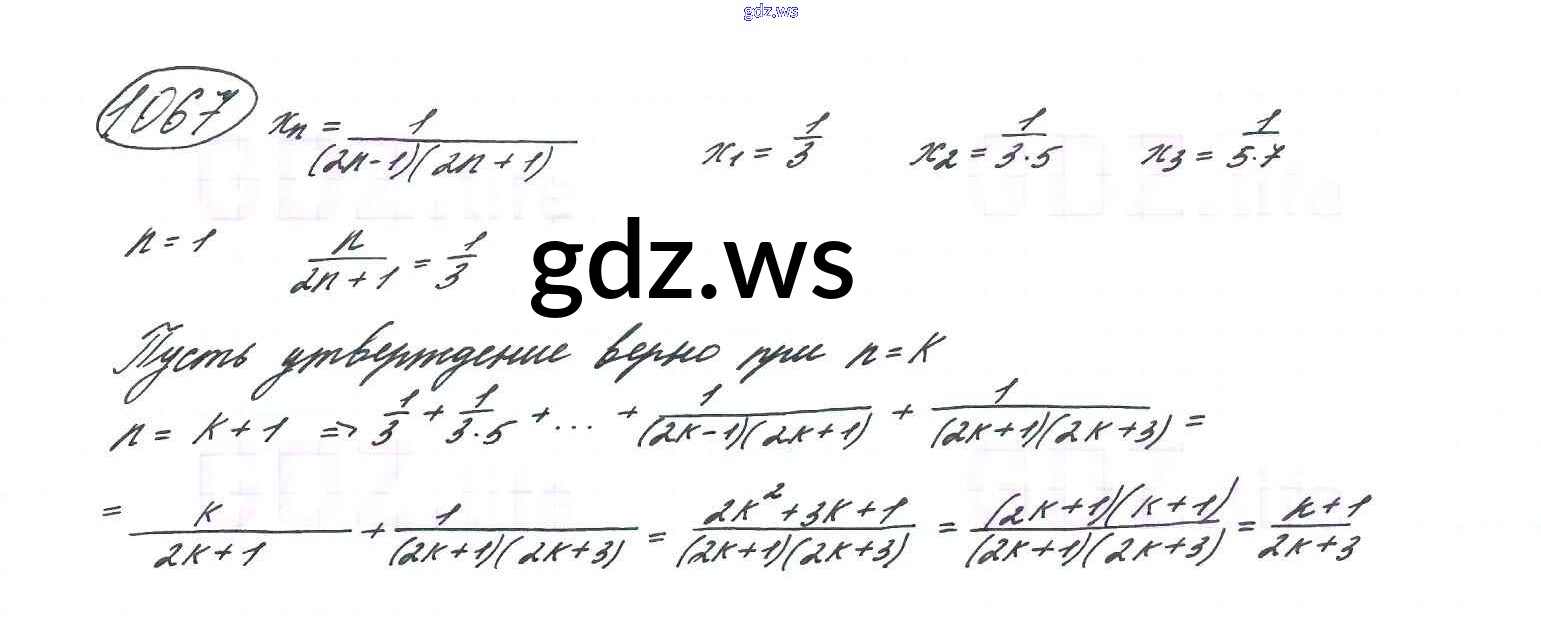 gdz.ws
1067 xₙ = 1/((2n-1)(2n+1)) x₁ = 1/3 x₂ = 1/(3·5) x₃ = 1/(5·7)
n = 1 n/(2n+1) = 1/3
gdz.ws
Пусть утверждение верно при n = K
n = K+1 => 1/3 + 1/(3·5) + ... + 1/((2K-1)(2K+1)) + 1/((2K+1)(2K+3)) =
= K/(2K+1) + 1/((2K+1)(2K+3)) = (2K²+3K+1)/((2K+1)(2K+3)) = ((2K+1)(K+1))/((2K+1)(2K+3)) = (K+1)/(2K+3)